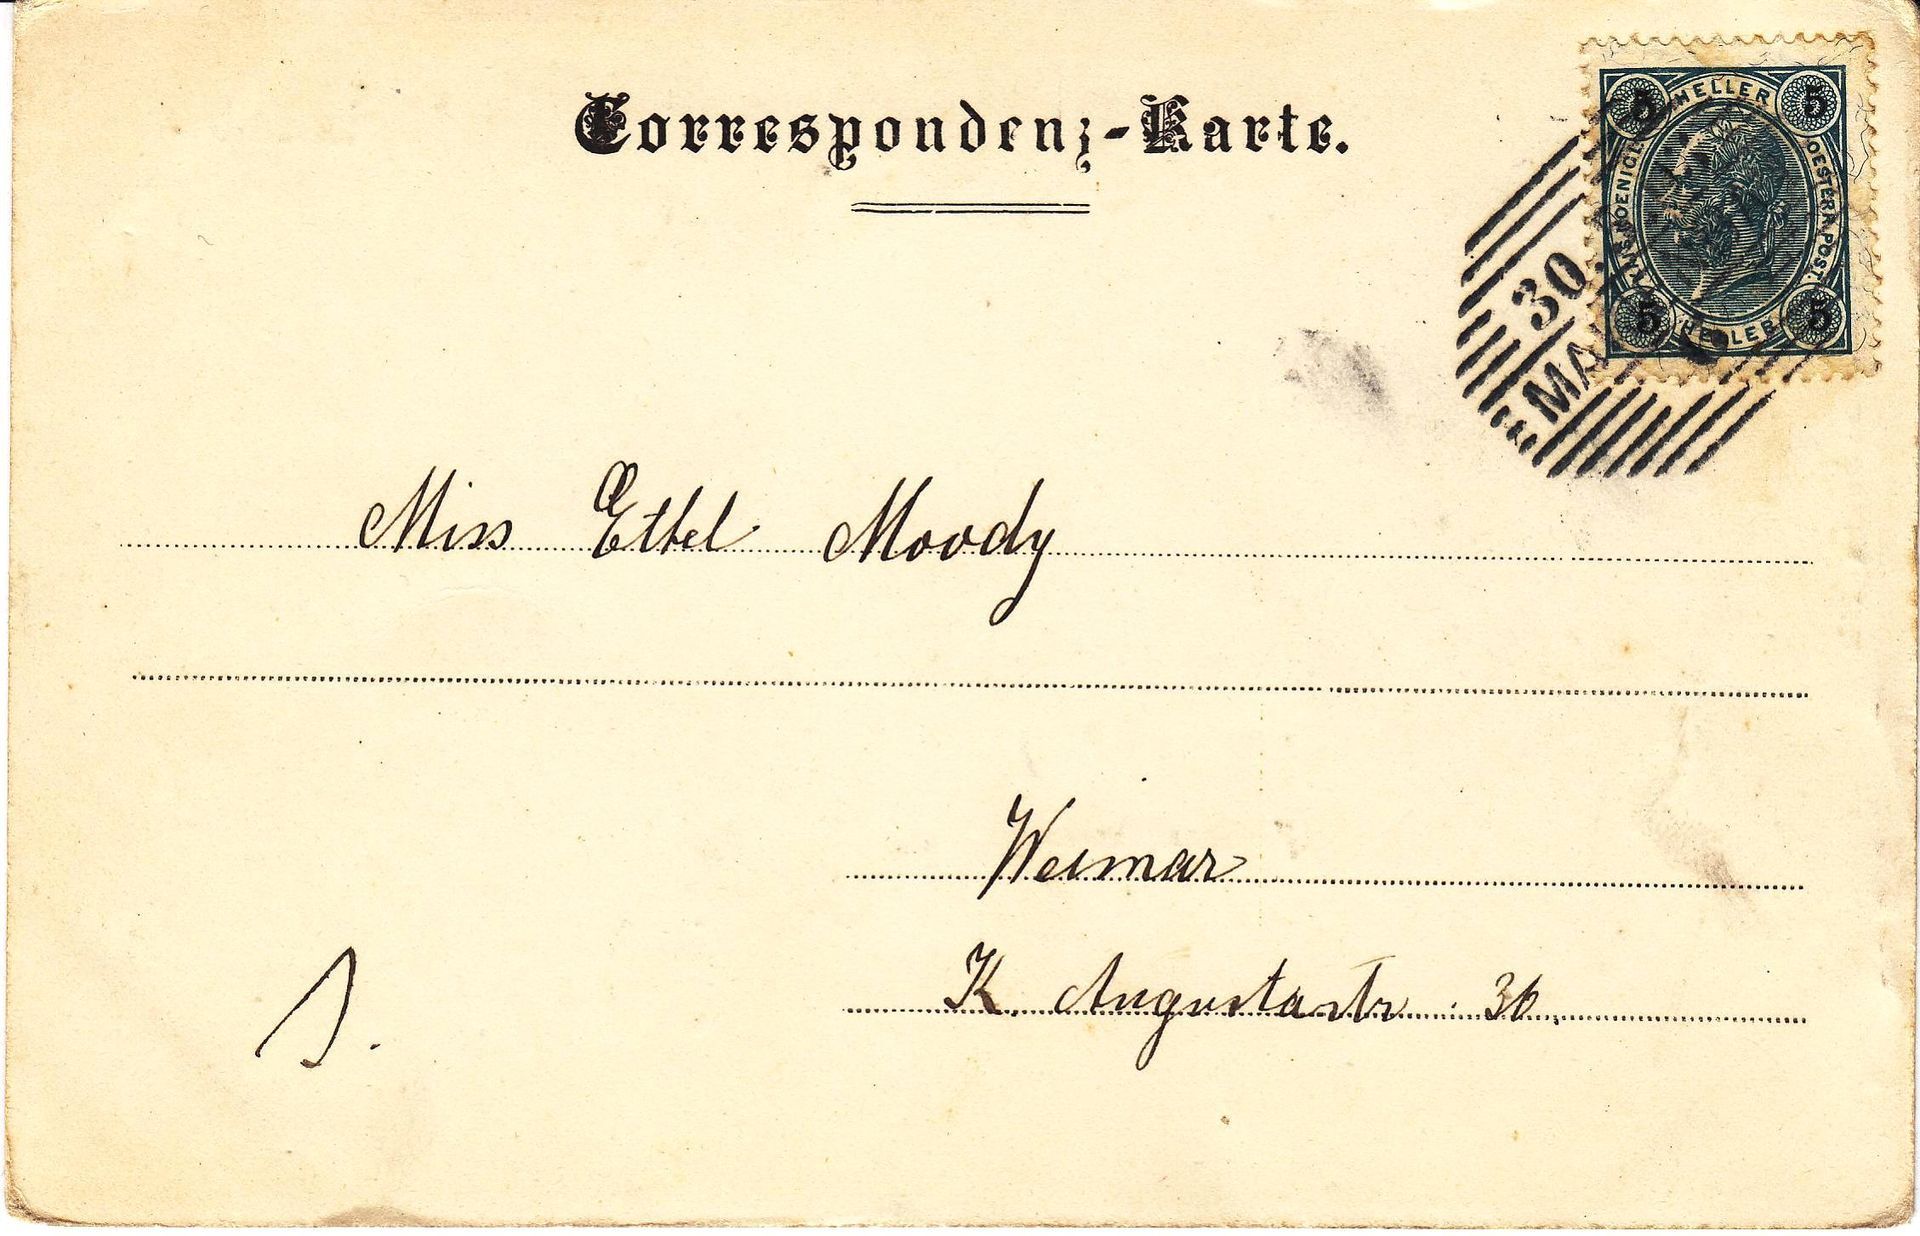 Correspondenz-Karte.
HELLER
5 5
KAIS. KOENIGL. OESTERR. POST.
5 5
HELLER
30.
MA
Miss Ethel Moody
Weimar
K. Augustastr. 36.